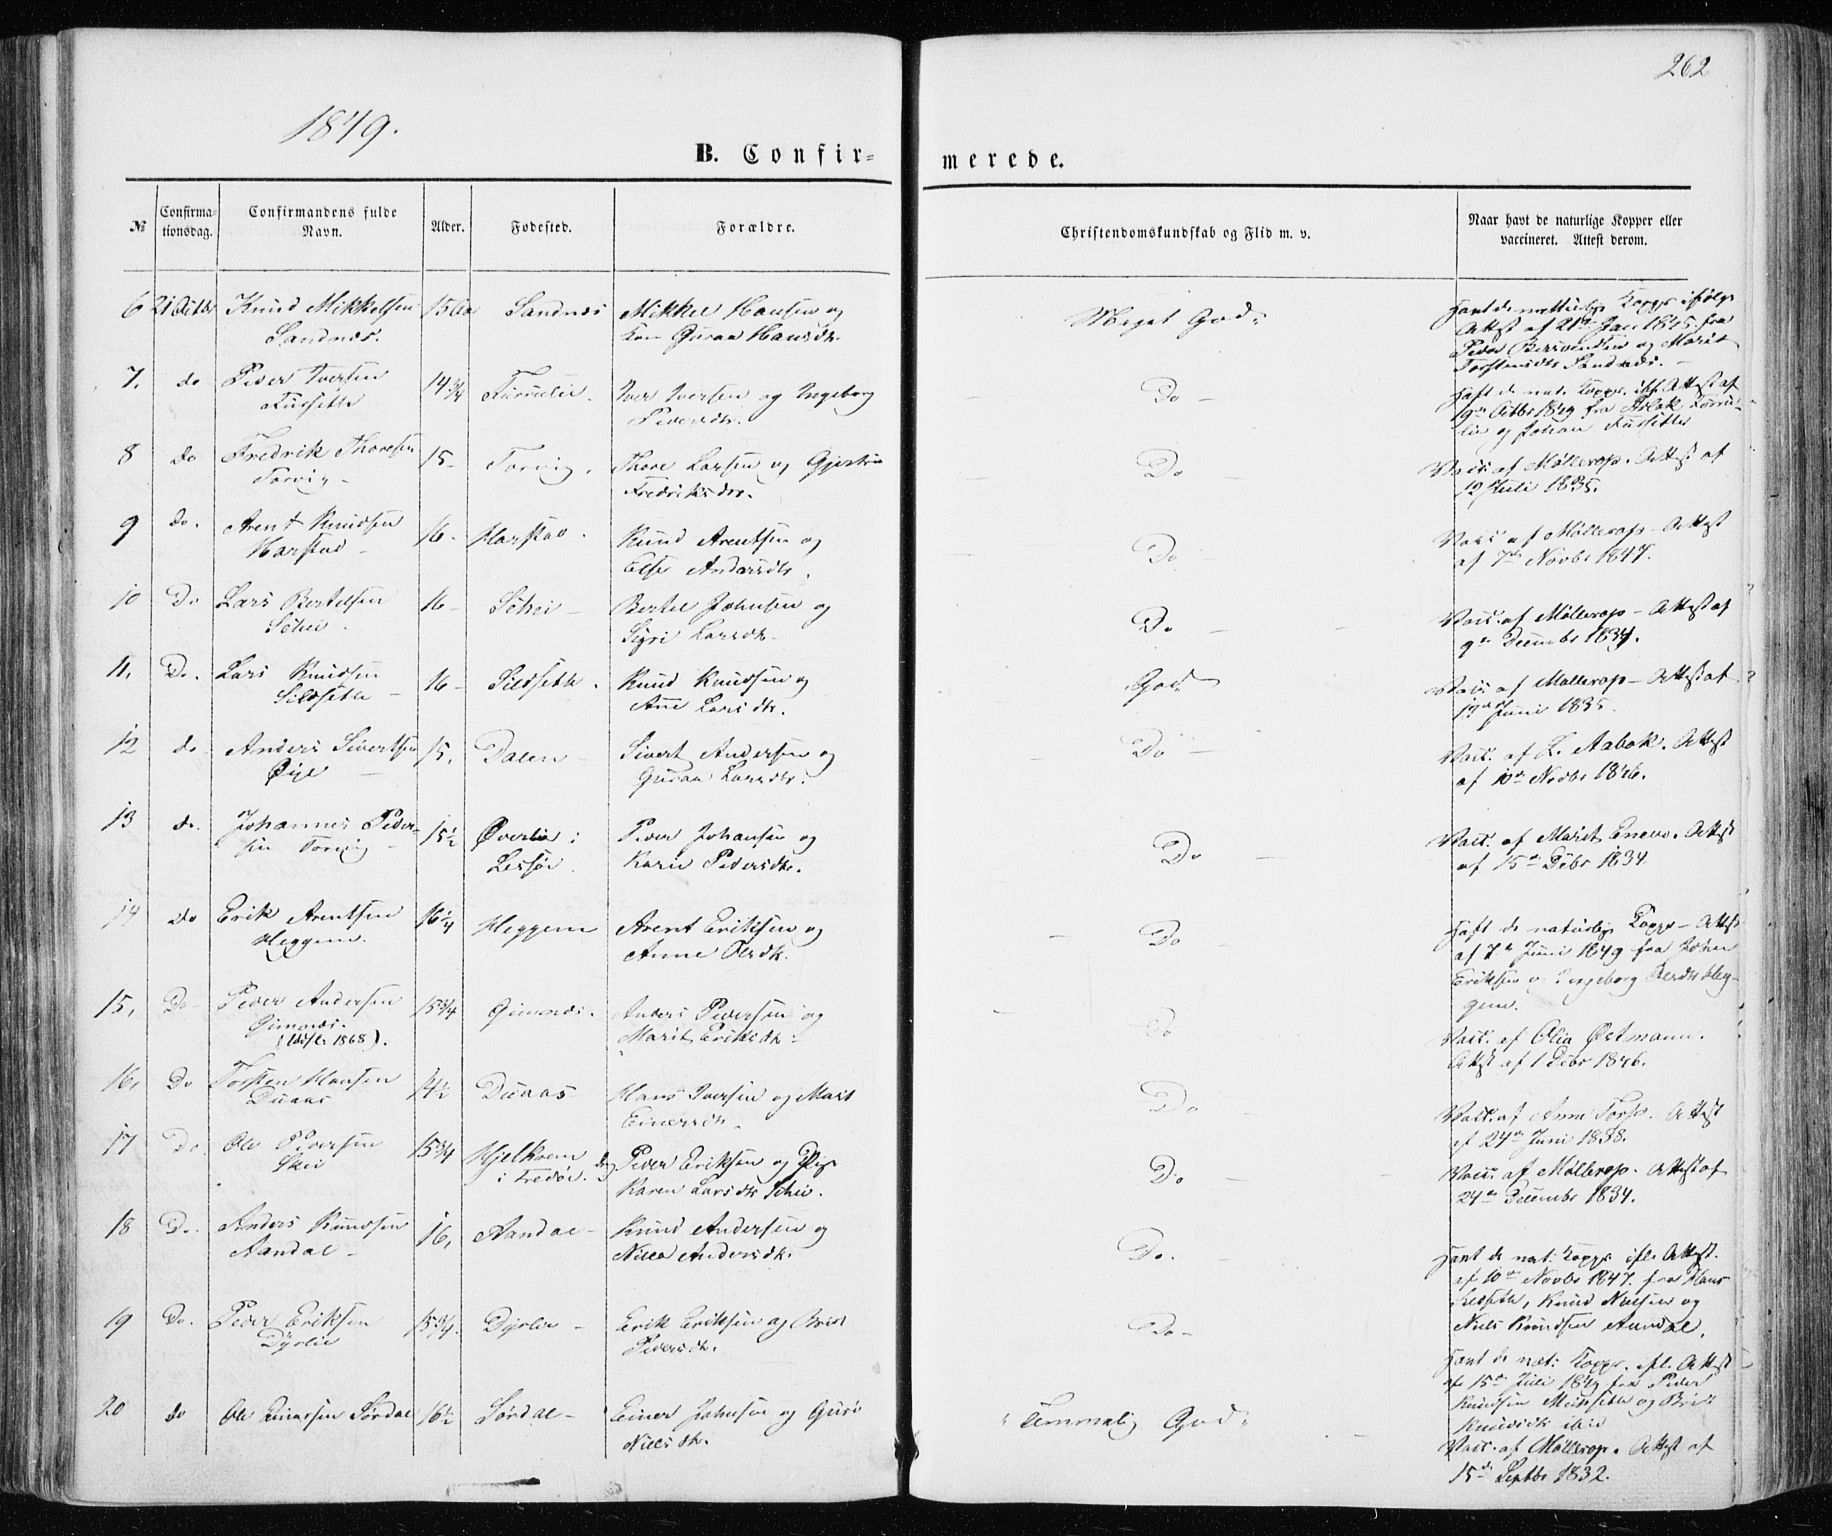 262
1849.
B. Confir= merede.
№
Confirma-
tionsdag.
Confirmandens fulde
Navn.
Alder.
Fødested.
Forældre.
Christendomskundskab og Flid m. v.
Naar havt de naturlige Kopper eller
vaccineret. Attest derom.
6 21 Octbr Knud Mikkelsen 15 Sandnes Mikkel Hansen og Meget God
Sandnes. Kon Guraa Hansdtr.
Havt de naturlige Kopper ifølge
Attest af 21de Jan 1845 fra
Peder og Marit
Torstensdtr Sandnes.
7. do Peder Iversen 14 3/4 Furulie. Iver Iversen og Ingeborg Do
Fursetth Pedersdtr.
Haft de nat. Kopper. Attest af
19de Octbr 1849 fra
lie og Johan Fursetth
8 Do Fredrik Thoresen 15 Torvig. Thore Larsen og Gjertru Do
Torvig Fredriksdtr.
Vacc. af Møllerop. Attest af
12 Juli 1835.
9 Do. Arent Knudsen 16 Harstad. Knud Arentsen og Do
Harstad Else Andersdtr.
Vacc af Møllerop Attest
af 7de Novbr 1847.
10 Do Lars Bertelsen 16 Schei Bertel Johnsen og Do
Schei Sigri Larsdtr.
Vacc. af Møllerop Attest af
9de Decembr 1834.
11. Do. Lars Knudsen 16 Sildsetth. Knud Knudsen og God
Sildsetth Ane Larsdtr.
Vacc. af Møllerop Attest af
19de Juni 1835.
12 do Anders Sivertsen 15. Dalen Sivert Andersen og Do
Øye Guraa Larsdtr.
Vacc. af L. Aabak. Attest
af 10de Novbr 1846.
13 do. Johannes Peder- 15 1/2 Øverlie i Peder Johansen og Do
sen Torvig Lessøe. Karen Pedersdtr.
Vacc. af Marit Eneve. Attest
af 15de Debr 1834
14 do Erik Arentsen 16 1/4 Heggem Arent Eriksen og Do
Heggem. Anne Olsdtr.
Haft de naturlige Kopper Attest
af 7de Juni 1849 fra John
Eriksen og Ingeborg Heg-
gem.
15. Do Peder Andersen 15 3/4 Gimnæs. Anders Pedersen og Do
Gimnæs. Marit Eriksdtr.
1868).
Vacc. af Olia Østmann.
Attest af 1 Debr 1846.
16. Do Torsten Hansen 14 1/2 Duaas Hans Iversen og Marit Do
Duaas Einersdtr.
Vacc. af Anne Attest
af 24de Juni 1838.
17 Do Ole Pedersen 15 3/4 Hjelkrem Peder Eriksen og Pige Do
Skei i Fredøe. Karen Larsdtr Schei.
Vacc. af Møllerop. Attest af
24de Decembr 1834.
18 Do. Anders Knudsen 16. Aandal Knud Andersen og Do.
Aandal Andersdtr.
Havt de nat: Kopper ifl. Attest.
af 10de Novbr 1847. fra Hans
Knud Nielsen og
Niels Knudsen Aandal.
19 Do. Peder Eriksen 15 3/4. Dyrlie Erik Eriksen og Brit Do
Dyrlie Pedersdtr.
Havt de nat: Kopper. ifl. Attest
af 15de Juli 1849 fra Peder
Knudsen og Brit
Knudsdtr ibid
20 do Ole Einersen Sørdal 16 1/2 Sørdal Einer Johnsen og Guri Temmelig God
Nielsdtr.
Vacc. af Møllerop. Attest af
15de Septbr 1832.